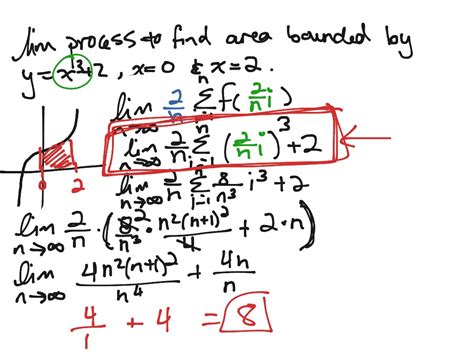 lim process to find area bounded by
y = x³+2 , x=0 & x=2.
lim n→∞ 2/n Σ i=1 n f(2/n i)
lim n→∞ 2/n Σ i=1 n (2/n i)³ + 2
0 2
lim n→∞ 2/n Σ i=1 n 8/n³ i³ + 2
lim n→∞ 2/n · (8 2/n³ · n²(n+1)²/4 + 2·n)
lim n→∞ 4n²(n+1)²/n⁴ + 4n/n
4/1 + 4 = 8